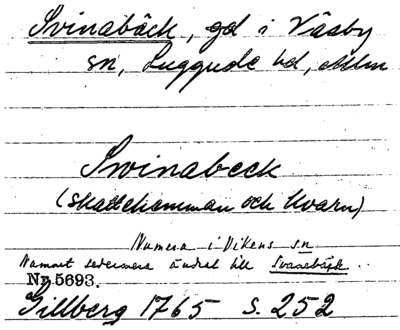 Svinabäck, gd i Väsby
sn, Luggude hd, Mlm
Swinabeck
(skattehamman och Kvarn)
Numera i Vikens sn
Namnet sedermera ändrat till Svanebäck.
Ny. 5693.
Gillberg 1765 s. 252